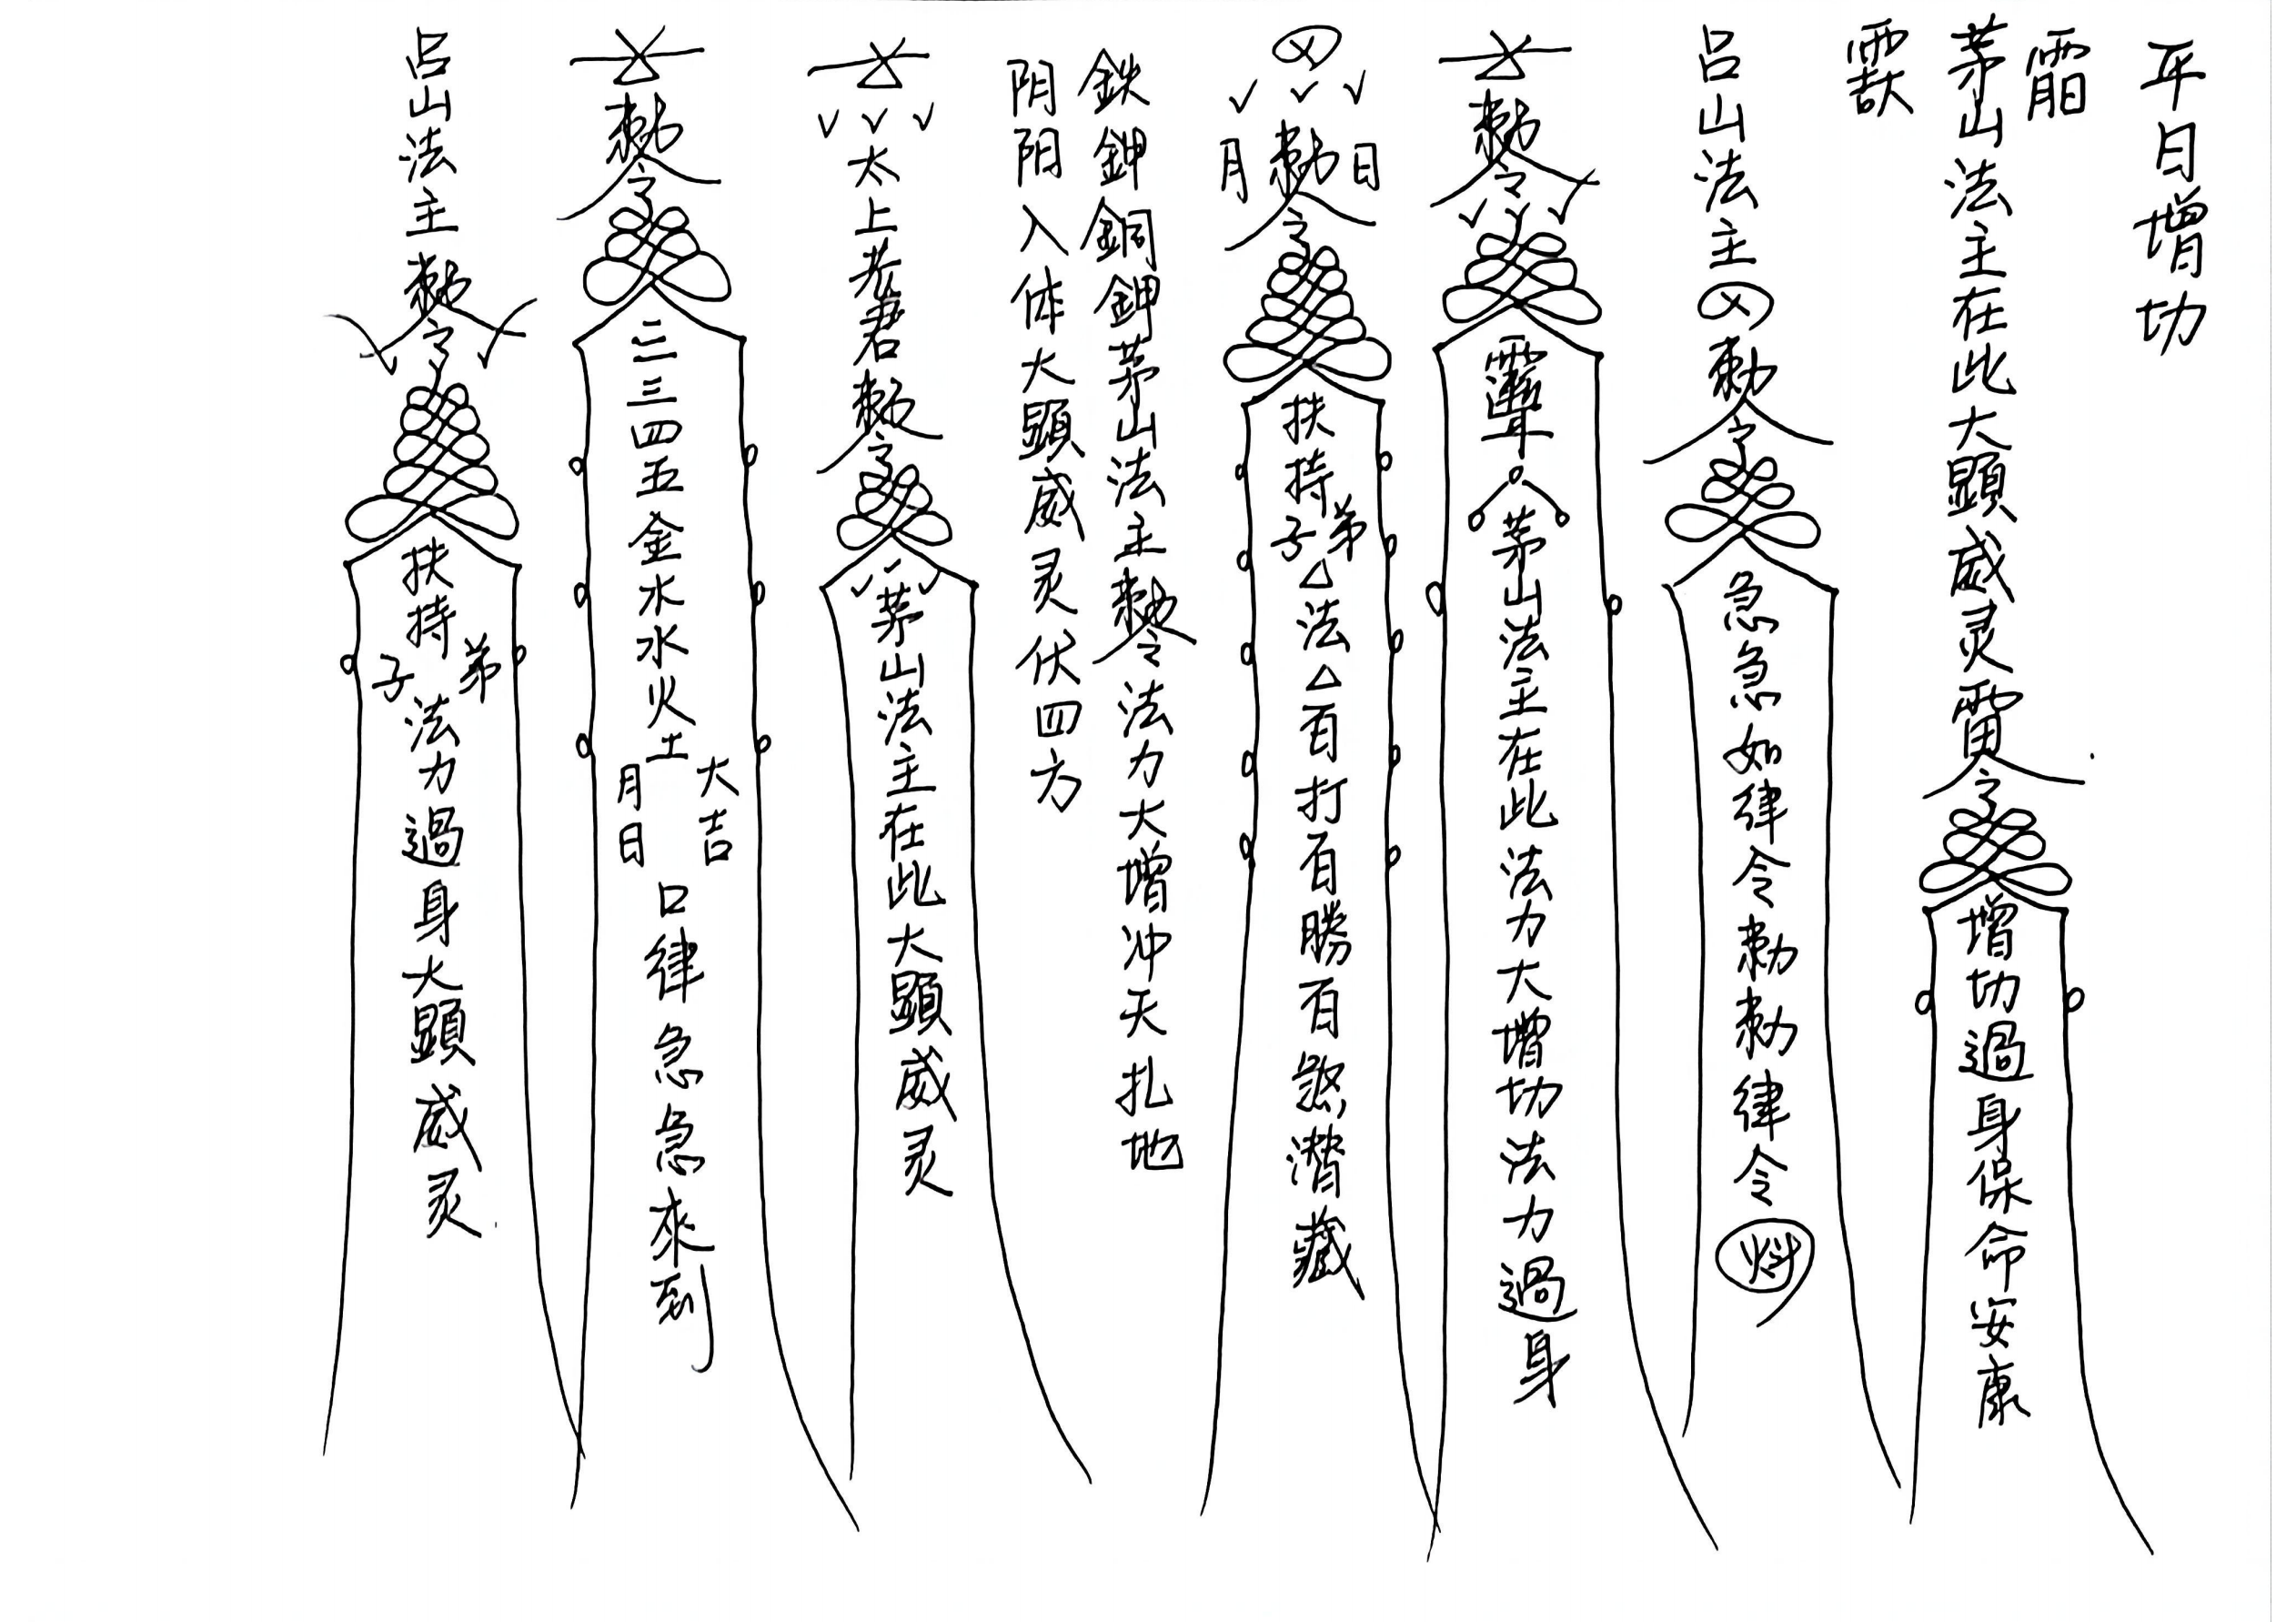 平日增功
茅山法主在此大顕威灵
令
增功過身保命安康
吕山法主
勅令
急急如律令勅勅律令
勅令
茅山法主在此法力大增功法力過身
月 勅令 日
扶持弟子△法△百打百勝百煞潛藏
鉄鉀銅鉀茅山法主勅令法力大增冲天扎地
阴阳入体大顕威灵伏四方
太上老君勅令
茅山法主在此大顕威灵
勅令
二三四五金水水火土
大吉
月日
口律急急來到
吕山法主勅令
扶持弟子法力過身大顕威灵